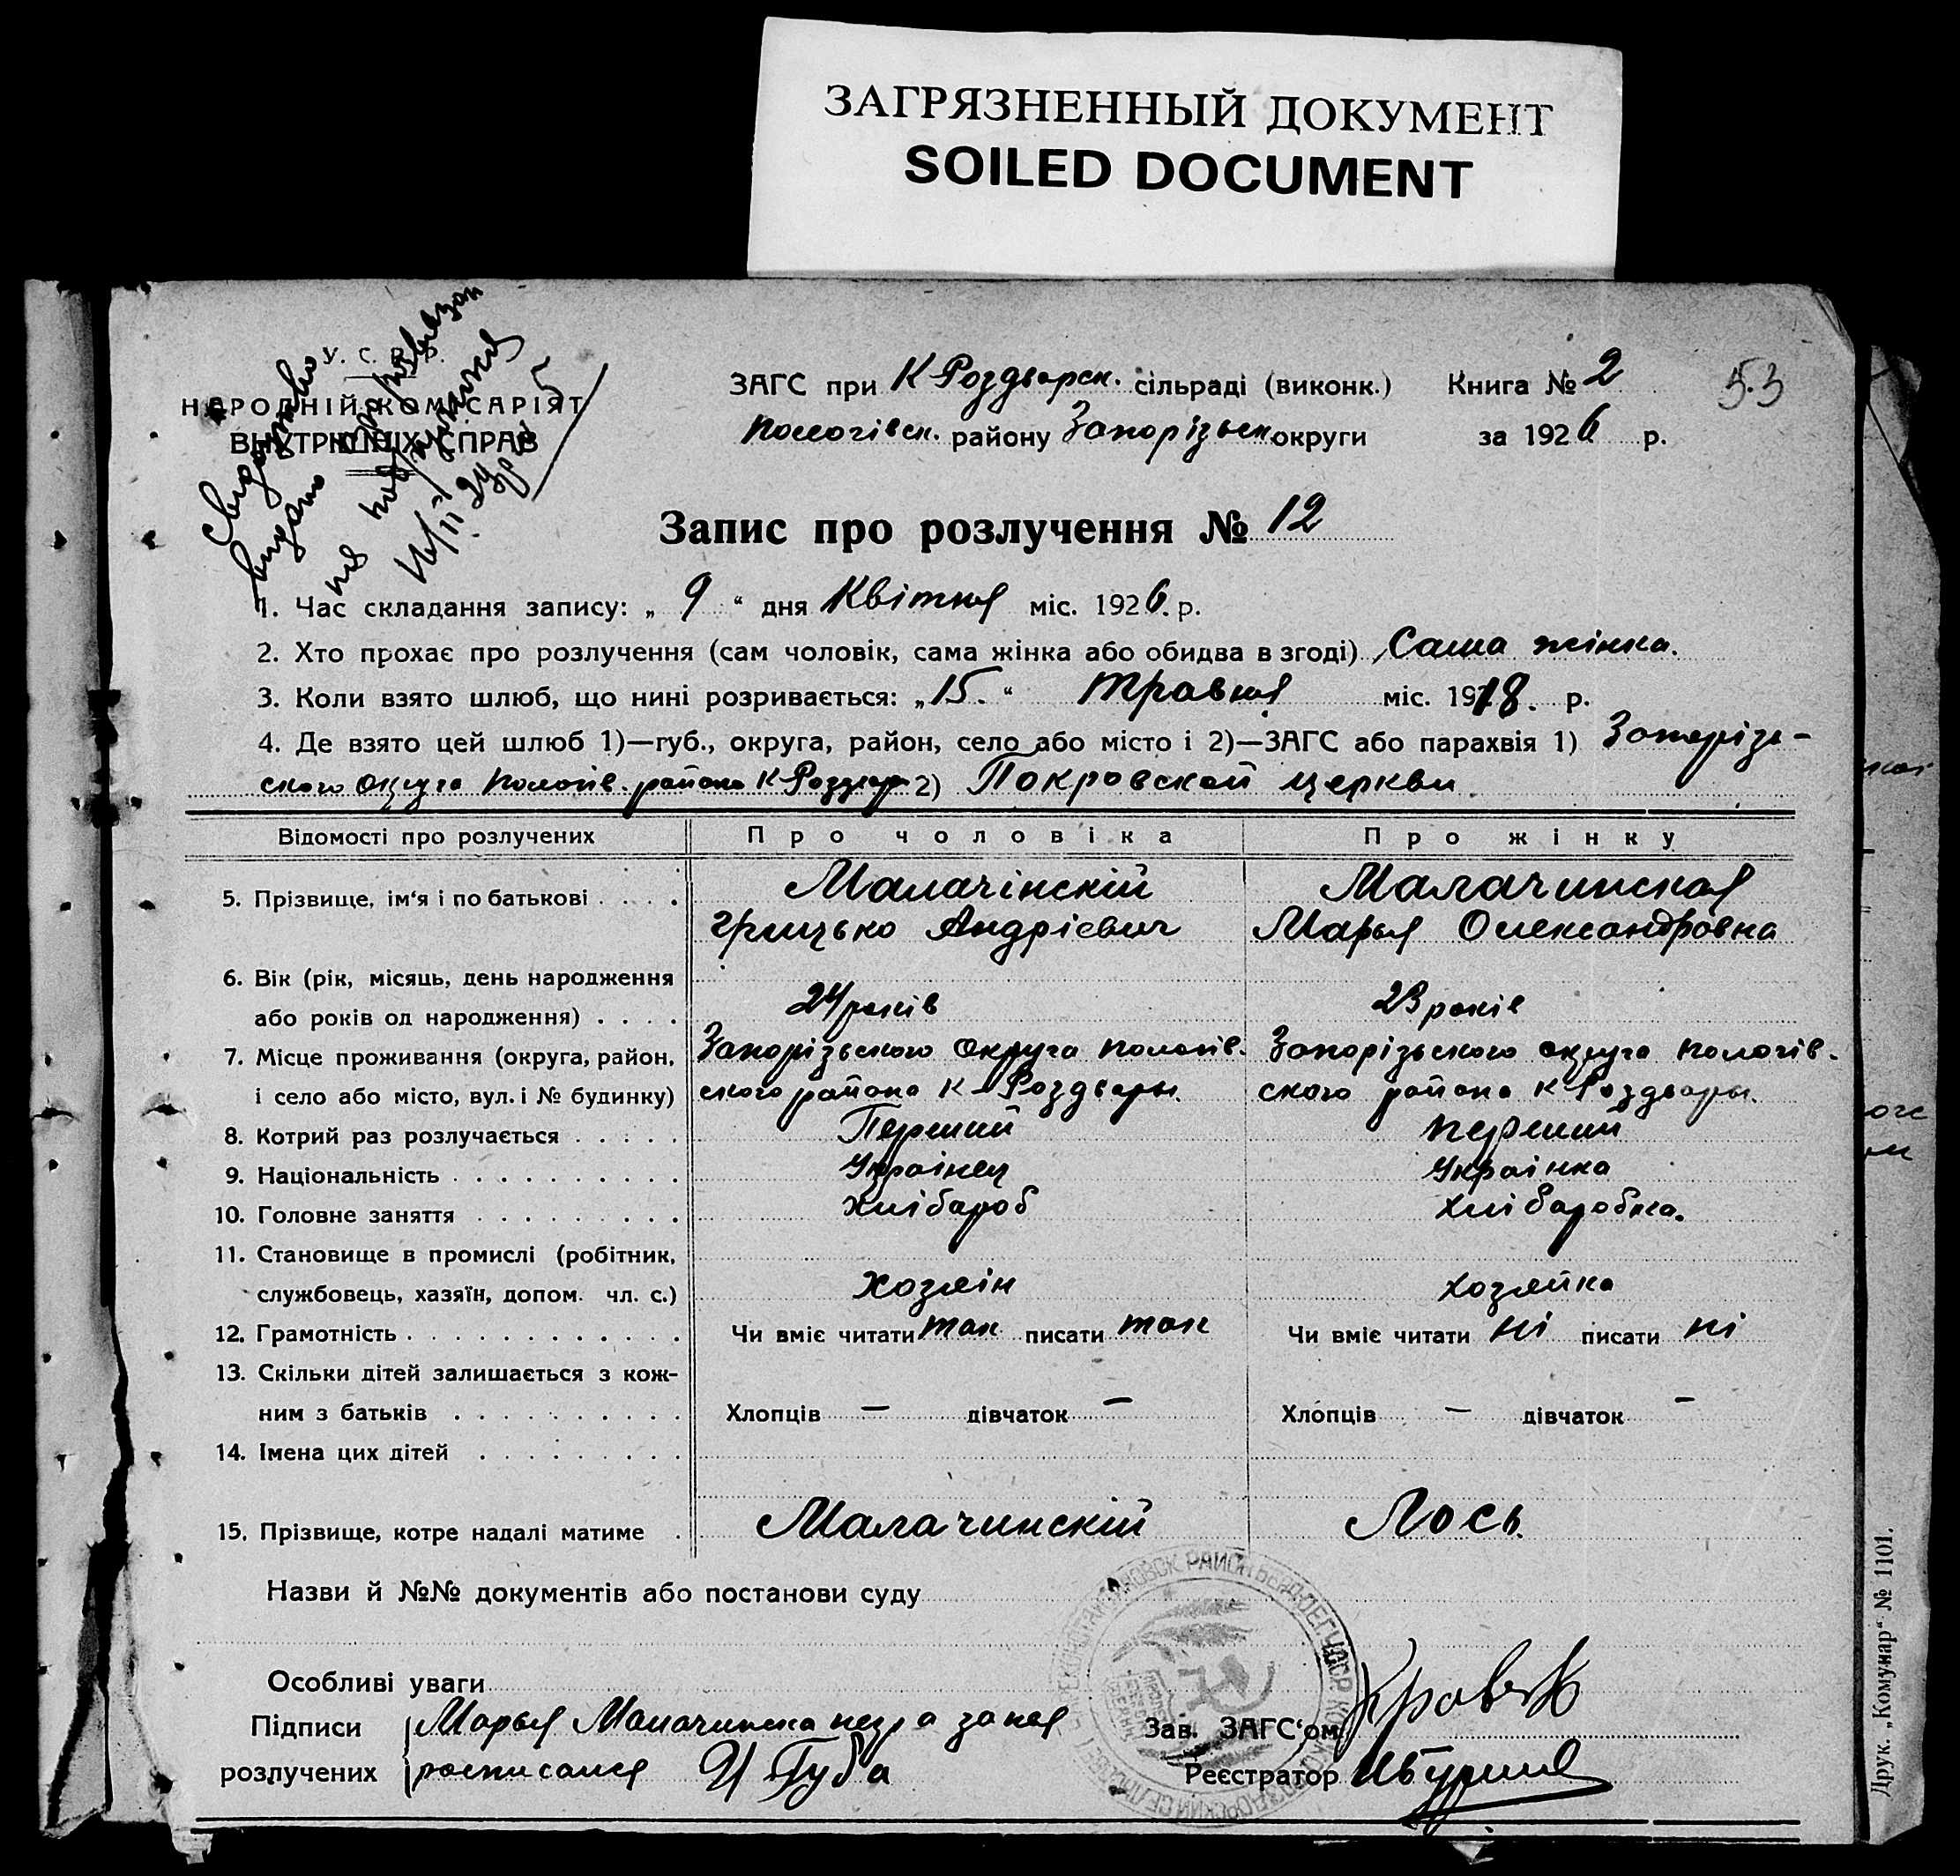 ЗАГРЯЗНЕННЫЙ ДОКУМЕНТ
SOILED DOCUMENT
У. С. Р. Р.
НАРОДНІЙ КОМІСАРІЯТ
ВНУТРІШНІХ СПРАВ
ЗАГС при К Роздорск. сільраді (виконк.) Книга № 2
53
Пологівск. району Запорізьк округи за 1926 р.
Запис про розлучення № 12
1. Час складання запису: „ 9 “ дня Квітня міс. 1926. р.
2. Хто прохає про розлучення (сам чоловік, сама жінка або обидва в згоді) Сама жінка.
3. Коли взято шлюб, що нині розривається: „15.“ Травня міс. 1918. р.
4. Де взято цей шлюб 1)—губ., округа, район, село або місто і 2)—ЗАГС або парахвія 1) Запорізь-
ского округа Пологів. района К Роздор 2) Покровской церкви.
Відомості про розлучених Про чоловіка Про жінку
5. Прізвище, ім‘я і по батькові . . . . Малачінскій Малачинская
Грицько Андрієвич Марья Олександровна
6. Вік (рік, місяць, день народження
або років од народження) . . . . 24 років 23 років
7. Місце проживання (округа, район, Запорізьского округа Пологів- Запорізьского округа Пологів-
і село або місто, вул. і № будинку) ского района К-Роздоры. ского района К Роздоры.
8. Котрий раз розлучається . . . . . Перший Перший
9. Національність . . . . . . . . . . Українец Українка
10. Головне заняття . . . . . . . . . Хлібароб Хлібаробка.
11. Становище в промислі (робітник,
службовець, хазяїн, допом. чл. с.) Хозяін Хозяйка
12. Грамотність . . . . . . . . . . . . Чи вміє читати так писати так Чи вміє читати ні писати ні
13. Скільки дітей залишається з кож-
ним з батьків . . . . . . . . . . Хлопців — дівчаток — Хлопців — дівчаток —
14. Імена цих дітей . . . . . . . . .
15. Прізвище, котре надалі матиме . Малачинскій Лось.
Назви й №№ документів або постанови суду
Особливі уваги
Підписи Марья Малачинска за нея Зав. ЗАГС‘ом
розлучених росписался Губа Реєстратор
Друк. „Комунар“ № 1101.